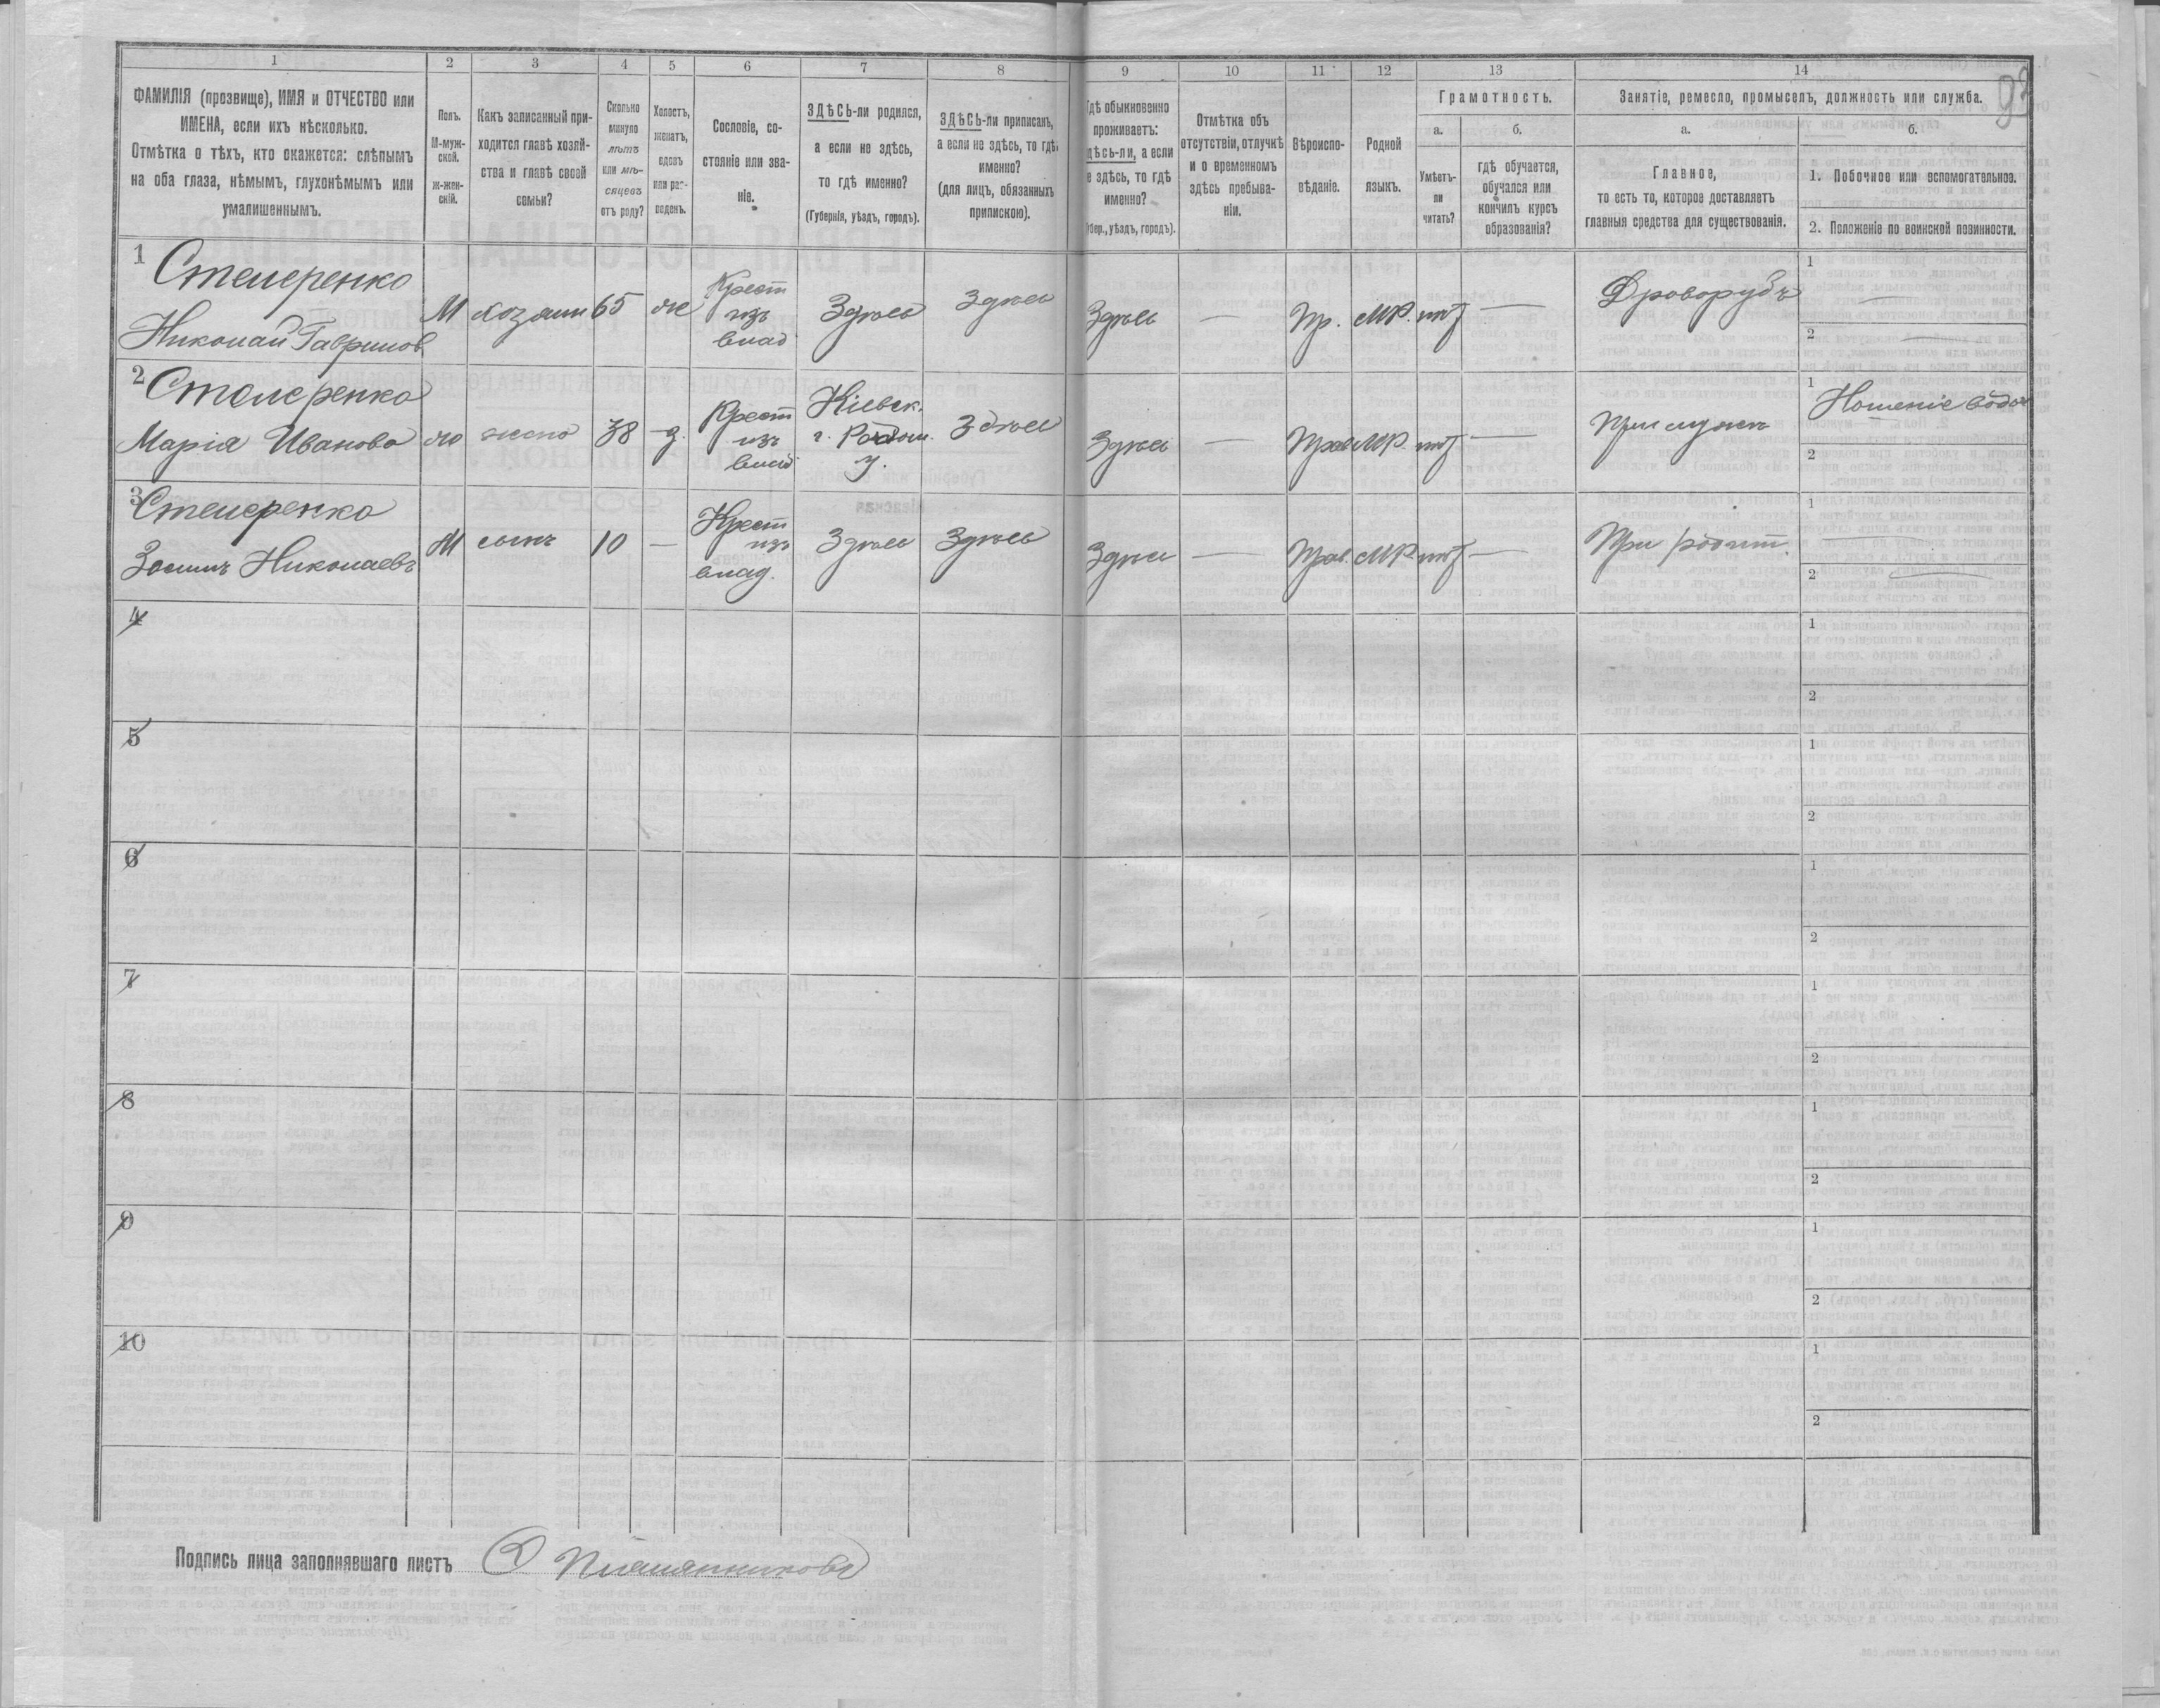 1 2 3 4 5 6 7 8 9 10 11 12 13 14
93
ФАМИЛІЯ (прозвище), ИМЯ и ОТЧЕСТВО или
ИМЕНА, если ихъ нѣсколько.
Отмѣтка о тѣхъ, кто окажется: слѣпымъ
на оба глаза, нѣмымъ, глухонѣмымъ или
умалишеннымъ.
Полъ.
М-муж-
ской.
ж-жен-
скій.
Какъ записанный при-
ходится главѣ хозяй-
ства и главѣ своей
семьи?
Сколько
минуло
лѣтъ
или мѣ-
сяцевъ
отъ роду?
Холостъ,
женатъ,
вдовъ
или раз-
веденъ.
Сословіе, со-
стояніе или зва-
ніе.
ЗДѢСЬ-ли родился,
а если не здѣсь,
то гдѣ именно?
(Губернія, уѣздъ, городъ).
ЗДѢСЬ-ли приписанъ,
а если не здѣсь, то гдѣ
именно?
(для лицъ, обязанныхъ
припискою).
Гдѣ обыкновенно
проживаетъ:
здѣсь-ли, а если
не здѣсь, то гдѣ
именно?
(Губер., уѣздъ, городъ).
Отмѣтка объ
отсутствіи, отлучкѣ
и о временномъ
здѣсь пребыва-
ніи.
Вѣроиспо-
вѣданіе.
Родной
языкъ.
Грамотность.
а.
Умѣетъ-
ли
читать?
б.
гдѣ обучается,
обучался или
кончилъ курсъ
образованія?
Занятіе, ремесло, промыселъ, должность или служба.
а.
Главное,
то есть то, которое доставляетъ
главныя средства для существованія.
б.
1. Побочное или вспомогательное.
2. Положеніе по воинской повинности.
1 Степеренко
Николай Гаврилов
М хозяин 65 ж Крест изъ влад Здѣсь Здѣсь Здѣсь — Пр. МР. нѣт — Дроворубъ
1 —
2 —
2
Марія Иванова
ж жена 38 з. Крест изъ влад Кіевск. г. Радом. у. Здѣсь Здѣсь — Прав МР. нѣт — При мужѣ
1 Ношеніе воды
2
3 Степеренко
Зосимъ Николаевъ
М сынъ 10 — Крест изъ влад. Здѣсь Здѣсь Здѣсь — Прав. МР. нѣт — При родит.
1 —
2 —
4
1
2
5
1
2
6
1
2
7
1
2
8
1
2
9
1
2
10
1
2
Подпись лица заполнявшаго листъ